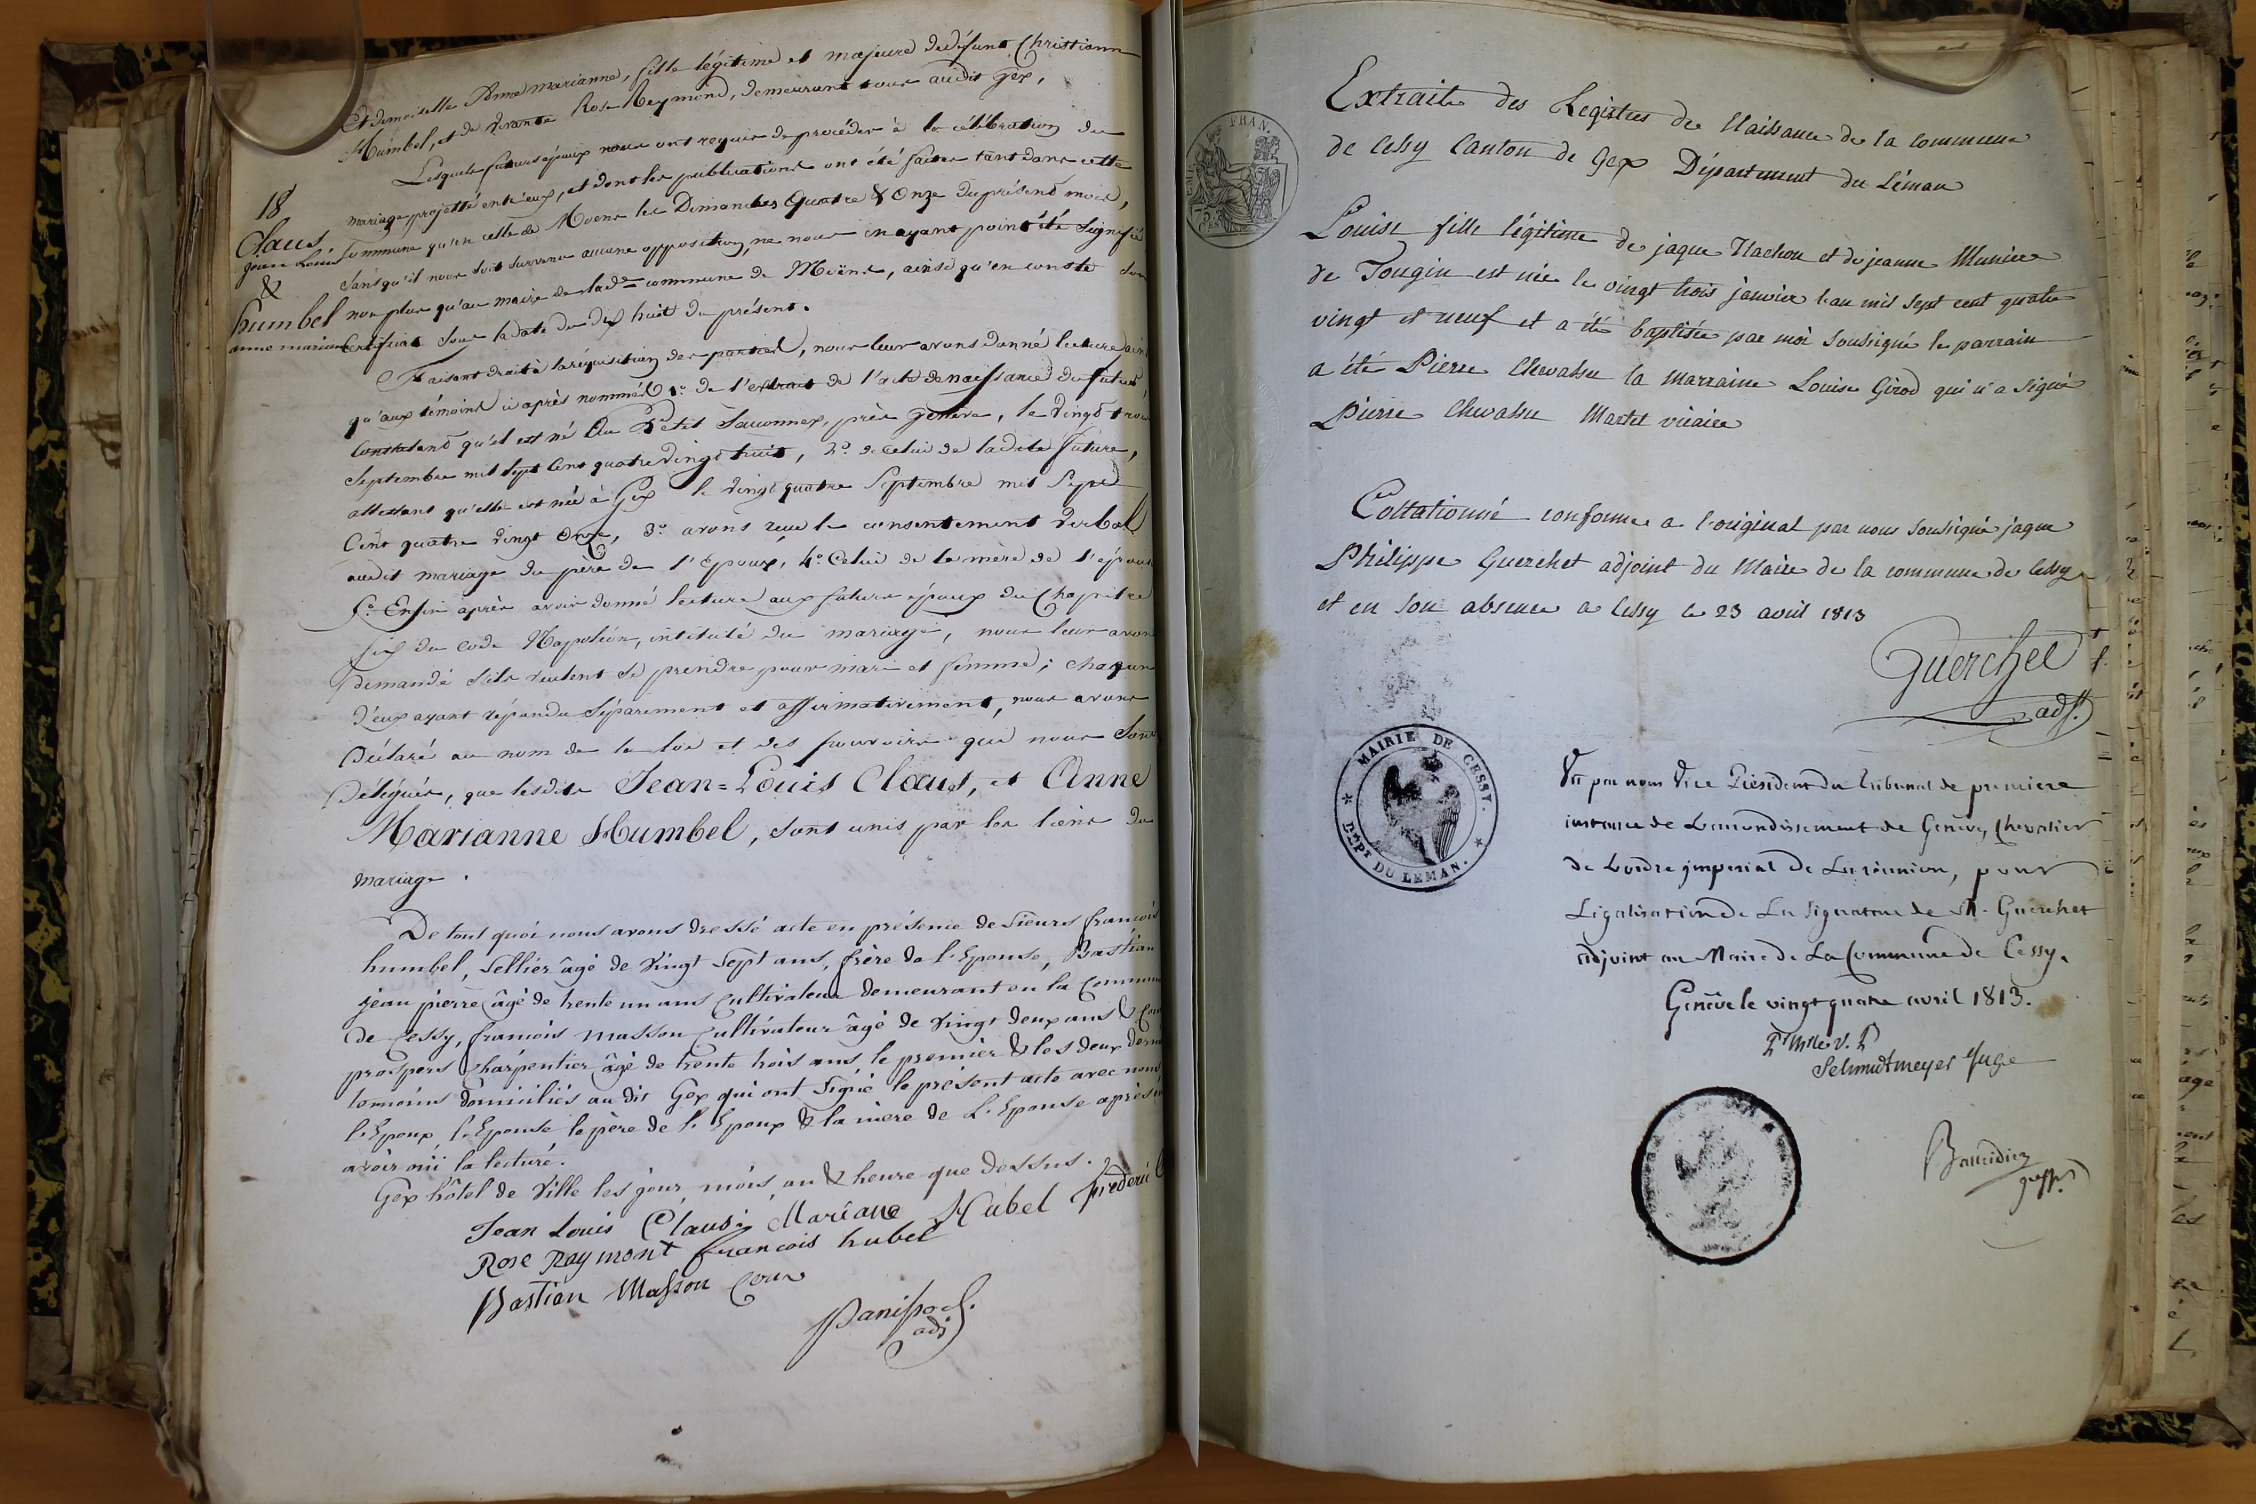 Et demoiselle Anne marianne, fille légitime et majeure de défunt Christianne
Humbel, et de vivante Rose Reymond, demeurant tous audit Gex,
Lesquels futurs époux nous ont requis de procéder à la célébration du
mariage projetté entr'eux, et dont les publications ont été faites tant dans cette
Commune qu'en celle de Moëns les Dimanches Quatre & Onze du présent mois,
Sans qu'il nous soit survenu aucune opposition, ne nous en ayant point été signifié
non plus qu'au maire de lad.e commune de Moëns, ainsi qu'en conste son
Certificat sous la date du dix huit du présent.
18
Claus
Jean Louis
&
humbel
anne marianne
Faisant droit à la réquisition des parties, nous leur avons donné lecture ainsi
qu'aux témoins ci après nommés 1.o de l'extrait de l'acte de naissance du futur,
Constatant qu'il est né Au Petit Saconnex, près Genève, le vingt trois
Septembre mil sept Cent quatre vingt huit, 2.o de celui de ladite future,
attestant qu'elle est née à Gex le vingt quatre Septembre mil Sept
Cent quatre vingt Onze, 3.o avons reçu le consentement verbal
audit mariage du père de l'Epoux, 4.o Celui de la mère de l'épouse
5.o Enfin après avoir donné lecture aux futurs époux du Chapitre
six du code Napoléon, intitulé du mariage, nous leur avons
Demandé s'ils veulent se prendre pour mari et femme; chaqun
D'eux ayant répondu Séparément et affirmativement, nous avons
Déclaré au nom de la loi et des pouvoirs qui nous sont
Délégués, que lesdits Jean=Louis Claus, et Anne
Marianne Humbel, sont unis par les liens du
mariage.
De tout quoi nous avons dressé acte en présence de Sieurs françois
humbel, Sellier âgé de vingt Sept ans, frère de l'Epouse, Bastian
jean pierre âgé de trente un ans Cultivateur demeurant en la Commune
de Cessy, françois Masson Cultivateur âgé de vingt deux ans &
prospers Charpentier âgé de trente trois ans le premier & les deux derniers
temoins domiciliés au dit Gex qui ont signé le présent acte avec nous
l'Epoux, l'Epouse le père de l'Epoux & la mère de L'Epouse après en
avoir oui la lecture.
Gex hôtel de ville les jour, mois, an & heure que dessus.
Jean Louis Claus Mariane Hubel frederic
Rose Raymont francois hubel
Bastian Masson
adj
Extrait des Registres de Naissance de la commune
de Cessy Canton de Gex Département du Léman
FRAN.
75
Louise fille légitime de jaque Nachon et de jeanne Munier
de Tougin est née le vingt trois janvier l'an mil sept cent quatre
vingt et neuf et a été baptisée par moi soussigné le parrain
a été Pierre Chevassu la marraine Louise Girod qui n'a signé
Pierre Chevassu Martel vicaire
Collationné conforme a l'original par nous soussigné jaque
Philippe Guerchet adjoint du Maire de la commune de Cessy
et en son absence a Cessy le 23 avril 1813
Guerchet
adj.t
MAIRIE DE CESSY.
D.ept DU LEMAN.
Vu par nous Vice Président du Tribunal de première
instance de l'arrondissement de Genève, Chevalier
de l'ordre impérial de La réunion, pour
Légalisation de La signature de Mr. Guerchet
adjoint au Maire de La Commune de Cessy.
Genève le vingt quatre avril 1813.
Schmidtmeyer Juge
greff.